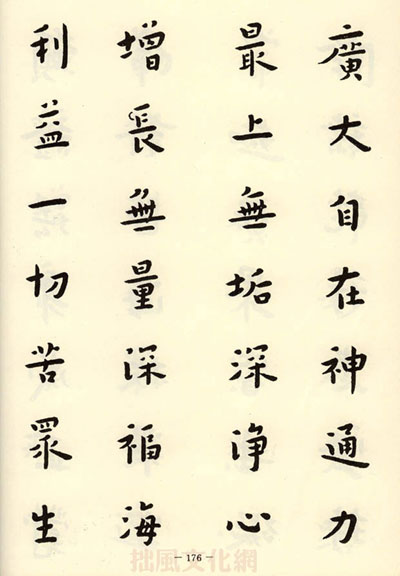 廣大自在神通力
最上無垢深淨心
增長無量深福海
利益一切苦眾生
— 176 —
拙風文化網